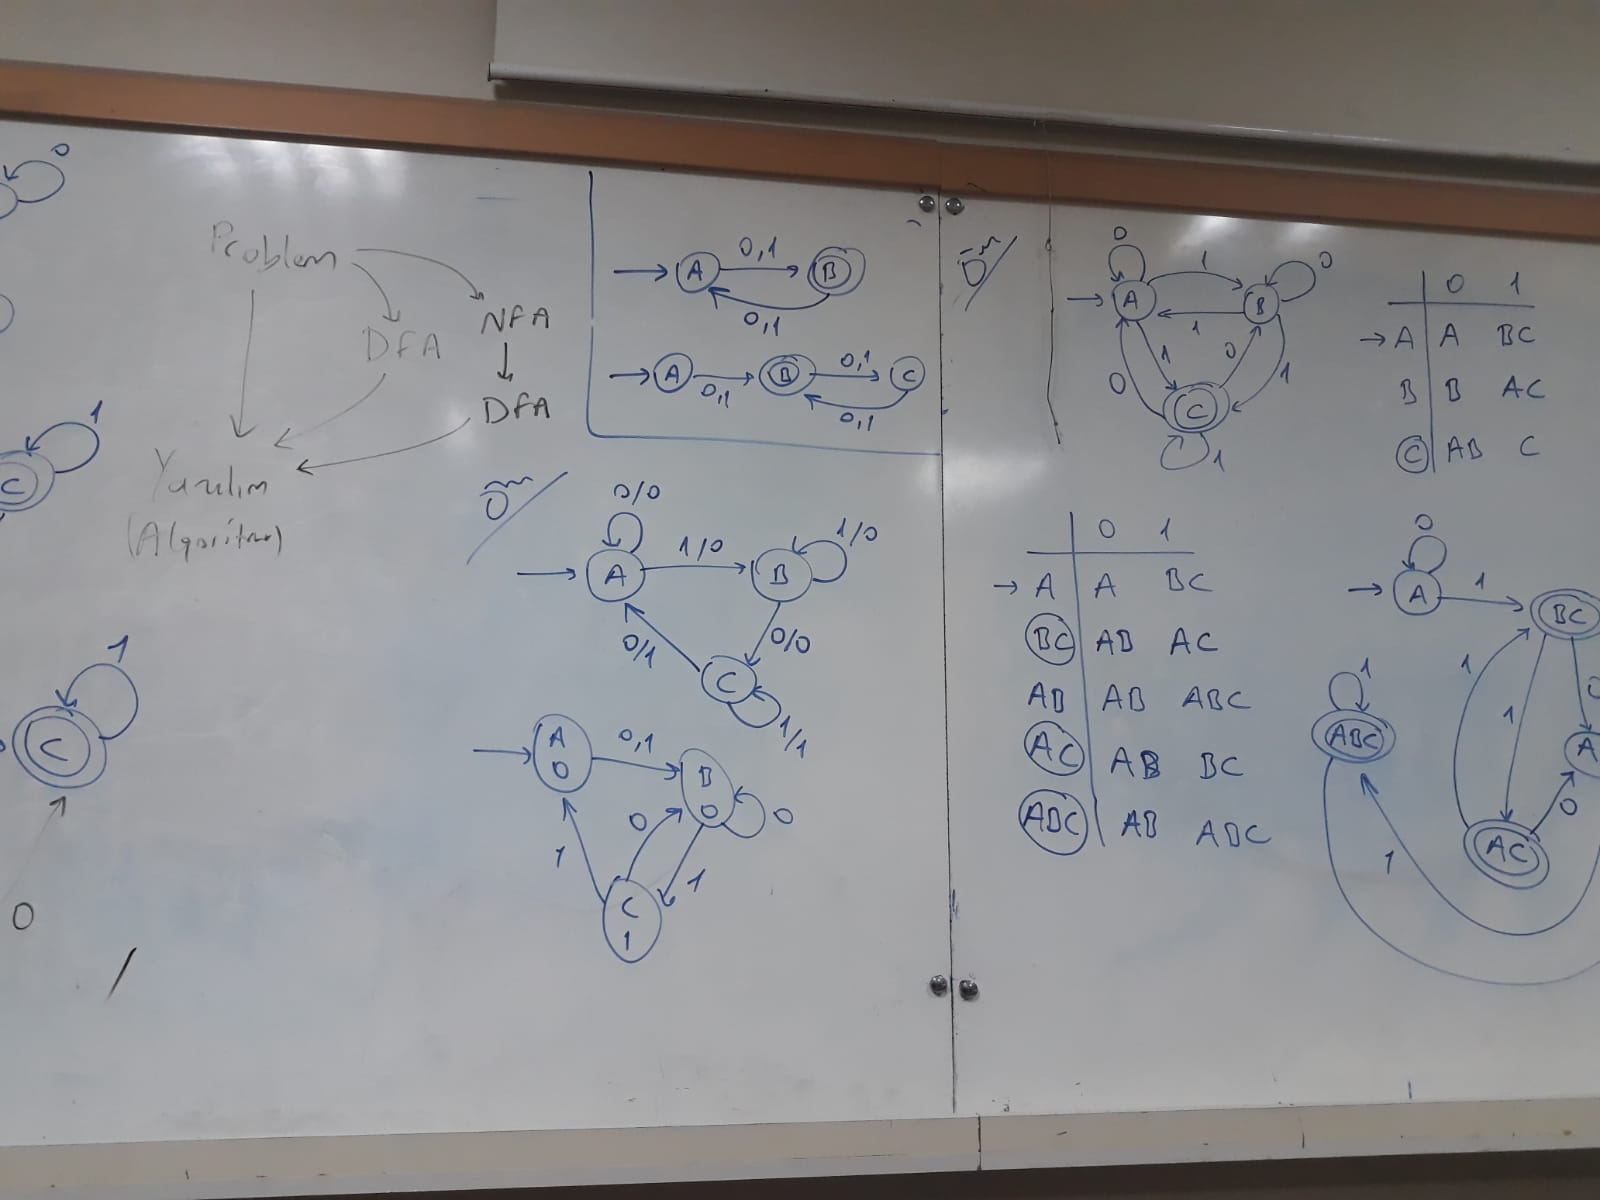 0
1
C
1
C
0
Problem
DFA
NFA
DFA
Yazılım
(Algoritma)
A 0,1 B
0,1
A 0,1 B 0,1 C
0,1
Örn/
0/0
A 1/0 B 1/0
0/1 0/0
C 1/1
A 0 0,1 B 0 0
1 0 1
C 1
Örn/
0
A 1 B 0
1
1 0
0 1
C
1
0 1
→ A A BC
B B AC
C AB C
0 1
→ A A BC
BC AB AC
AB AB ABC
AC AB BC
ABC AB ABC
0
A 1 BC
1 1 0
1
ABC A
AC 0
1